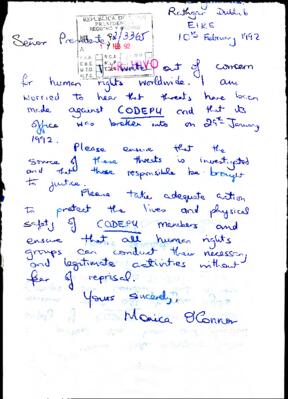 Rathgar Dublin 6
EIRE
10th February 1992
Señor Presidente
REPUBLICA DE
PRESIDEN
REGISTRO Y
92/3365
FEB 92
ARCHIVO
I write out of concern
for human rights worldwide. I am
worried to hear that threats have been
made against CODEPU and that its
office was broken into on 29th January
1992.
Please ensure that the
source of these threats is investigated
and that those responsible be brought
to justice.
Please take adequate action
to protect the lives and physical
safety of CODEPU members and
ensure that all human rights
groups can conduct their necessary
and legitimate activities without
fear of reprisal.
Yours sincerely,
Monica O'Connor